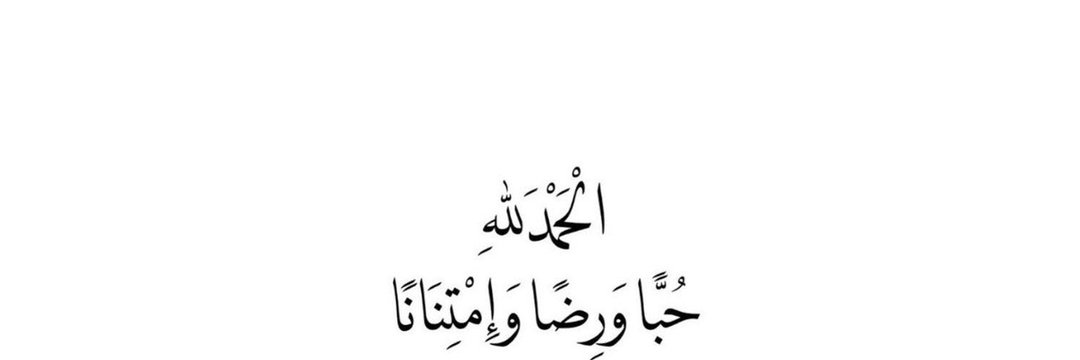 الْحَمْدَ لِلهِ
حُبًّا وَرِضًا وَإِمْتِنَانًا